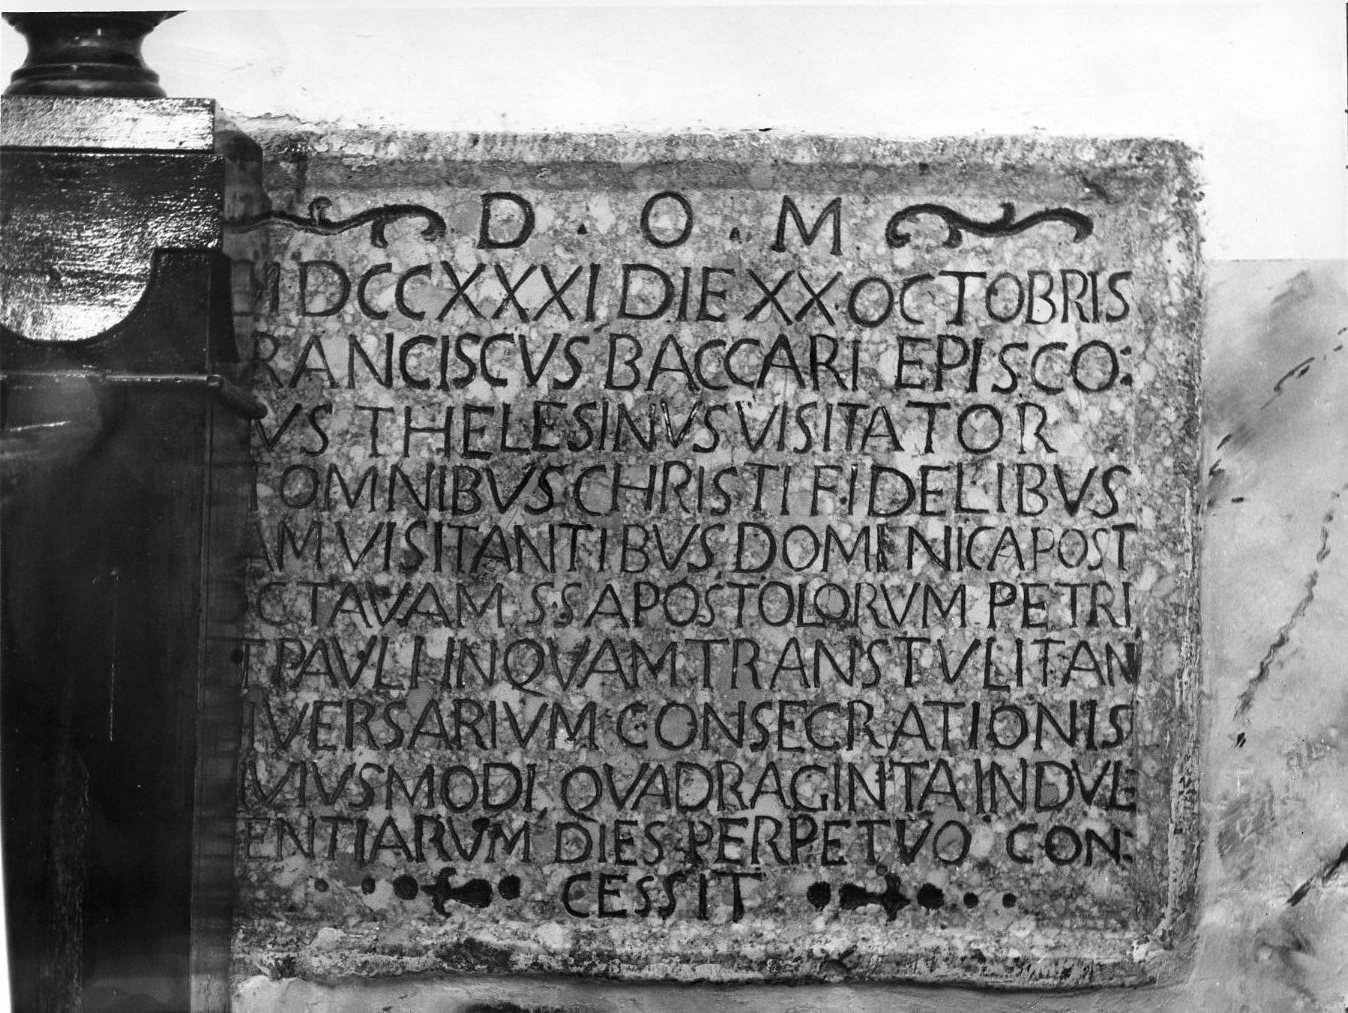 D · O · M
DCCXXXI DIE XX OCTOBRIS
RANCISCVS BACCARI EPISCO:
VS THELESINVS VISITATOR
T OMNIBVS CHRISTI FIDELIBVS
AM VISITANTIBVS DOMENICA POST
CTAVAM SS APOSTOLORVM PETRI
T PAVLI IN QVAM TRANSTVLIT AN
IVERSARIVM CONSECRATIONIS
IVIVSMODI QVADRAGINTA INDVL
ENTIARVM DIES PERPETVO CON:
CESSIT